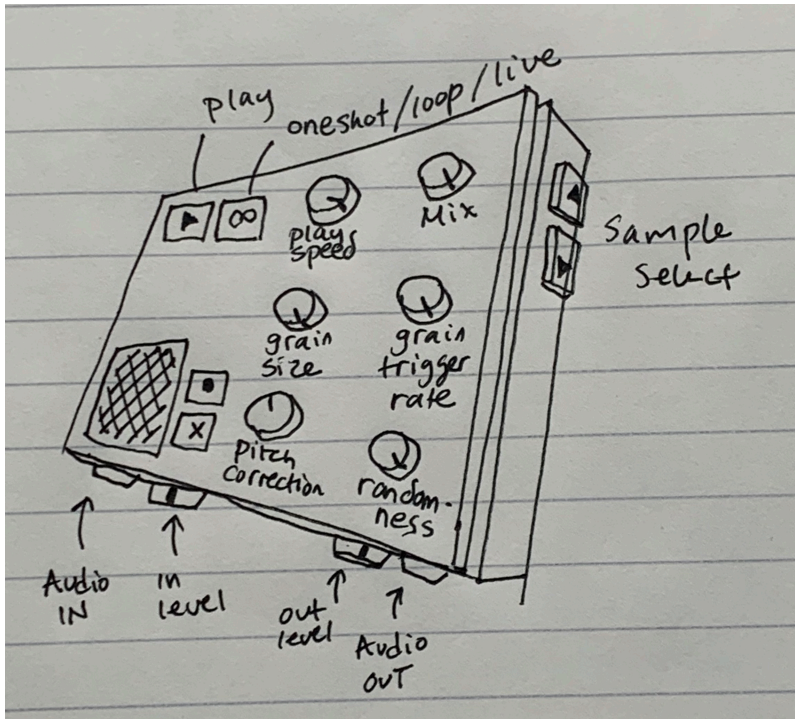 play
oneshot/loop/live
∞
play
speed
Mix
Sample
Select
grain
size
grain
trigger
rate
X
Pitch
correction
random-
ness
Audio
IN
in
level
out
level
Audio
OUT